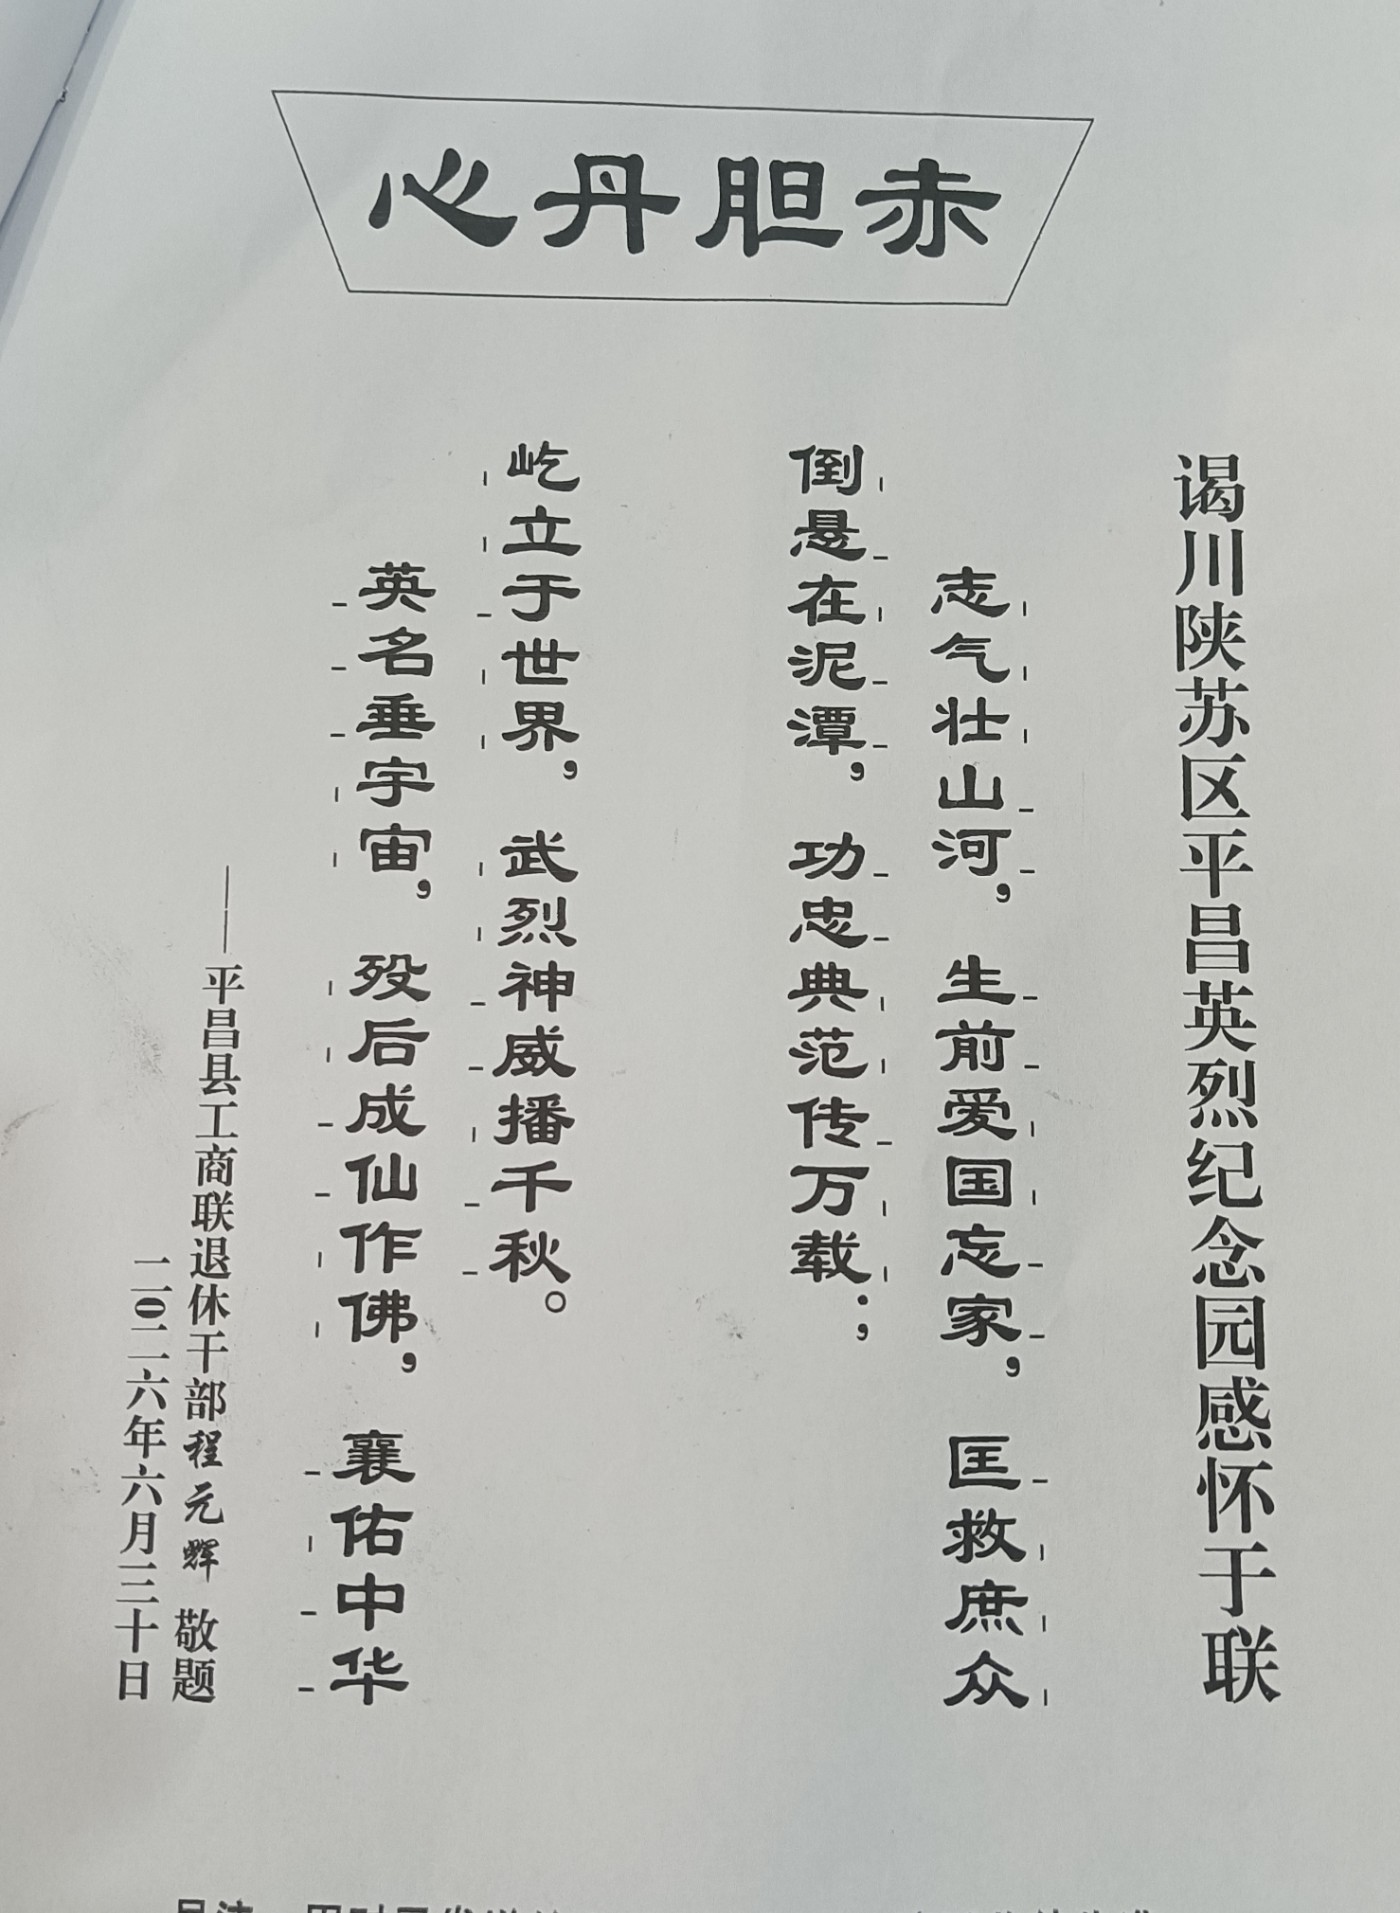 赤胆丹心
谒川陕苏区平昌英烈纪念园感怀于联
志气壮山河，生前爱国忘家，匡救庶众
倒悬在泥潭，功忠典范传万载；
英名垂宇宙，殁后成仙作佛，襄佑中华
屹立于世界，武烈神威播千秋。
——平昌县工商联退休干部程元辉 敬题
二〇二六年六月三十日